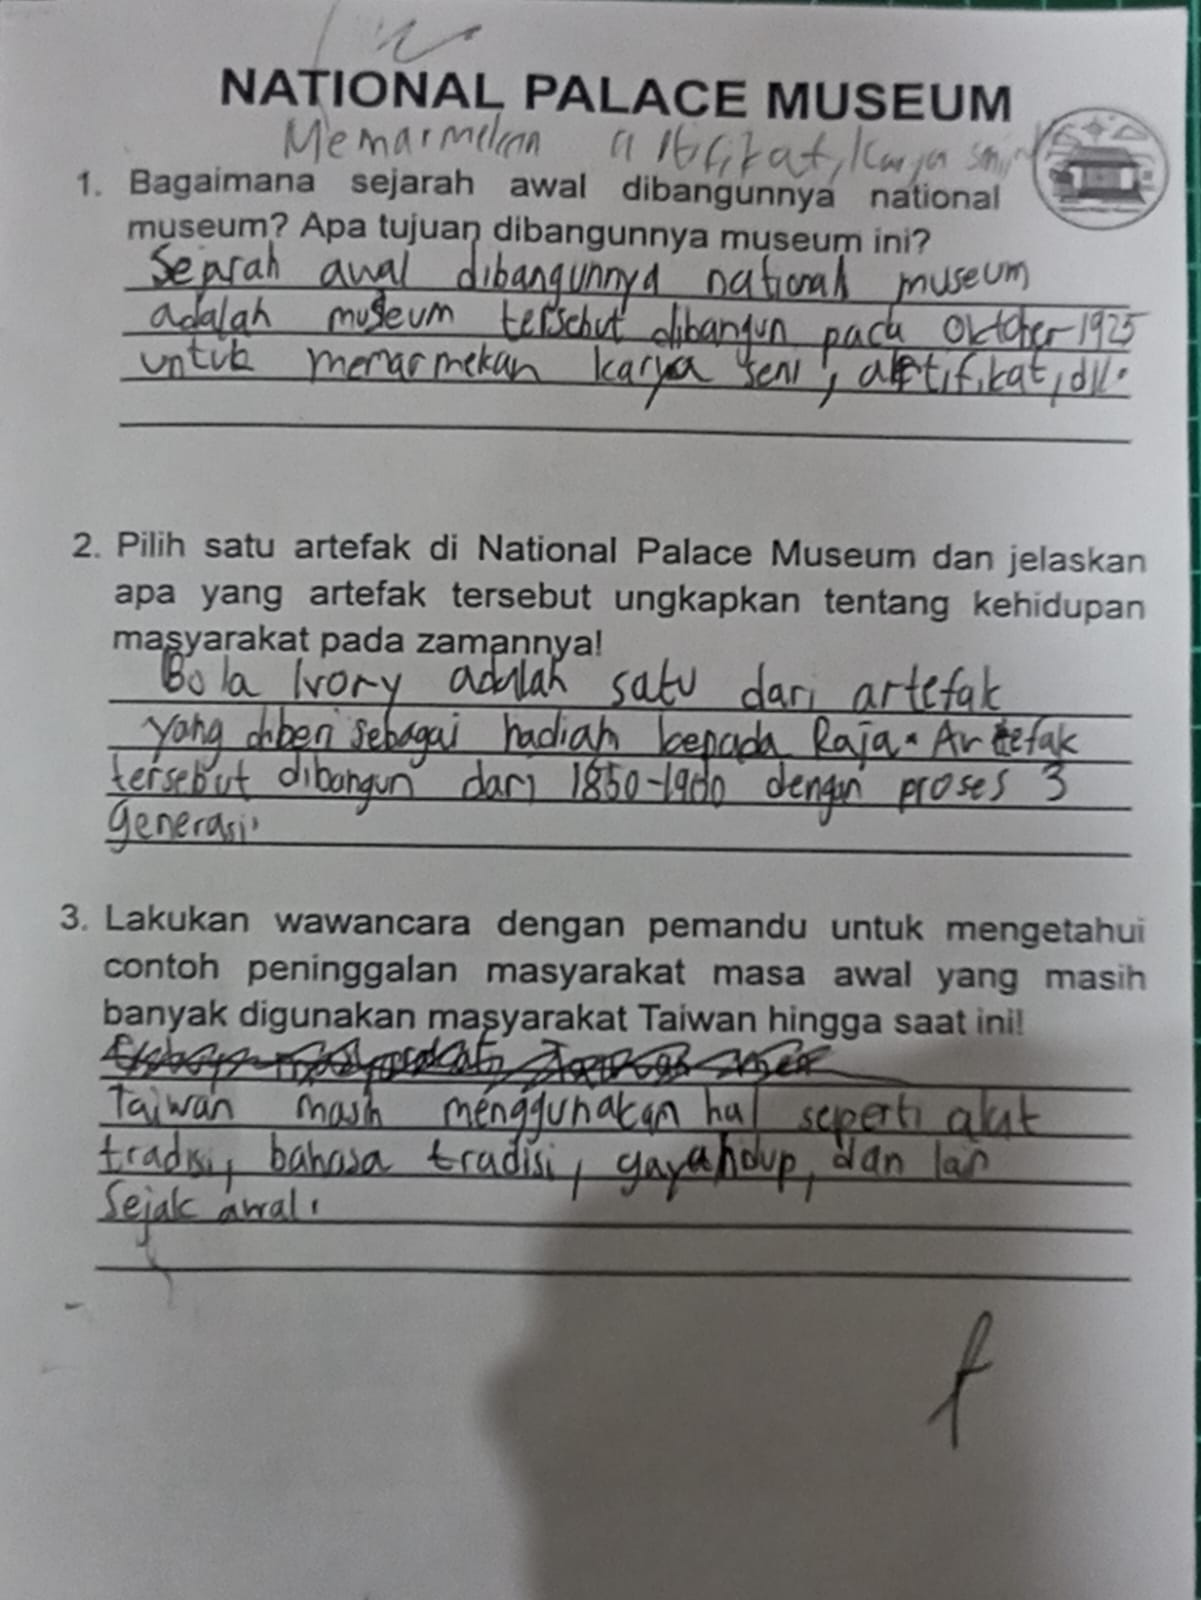 NATIONAL PALACE MUSEUM
Memarmekan artifikat, karya seni
1. Bagaimana sejarah awal dibangunnya national
museum? Apa tujuan dibangunnya museum ini?
Sejarah awal dibangunnya national museum
adalah museum tersebut dibangun pada Oktober 1925
untuk memarmekan karya seni, artifikat, dll.
2. Pilih satu artefak di National Palace Museum dan jelaskan
apa yang artefak tersebut ungkapkan tentang kehidupan
masyarakat pada zamannya!
Bola Ivory adalah satu dari artefak
yang diberi sebagai hadiah kepada Raja. Artefak
tersebut dibangun dari 1850-1900 dengan proses 3
Generasi.
3. Lakukan wawancara dengan pemandu untuk mengetahui
contoh peninggalan masyarakat masa awal yang masih
banyak digunakan masyarakat Taiwan hingga saat ini!
Taiwan masih menggunakan hal seperti alat
tradisi, bahasa tradisi, gaya hidup, dan lain
Sejak awal.